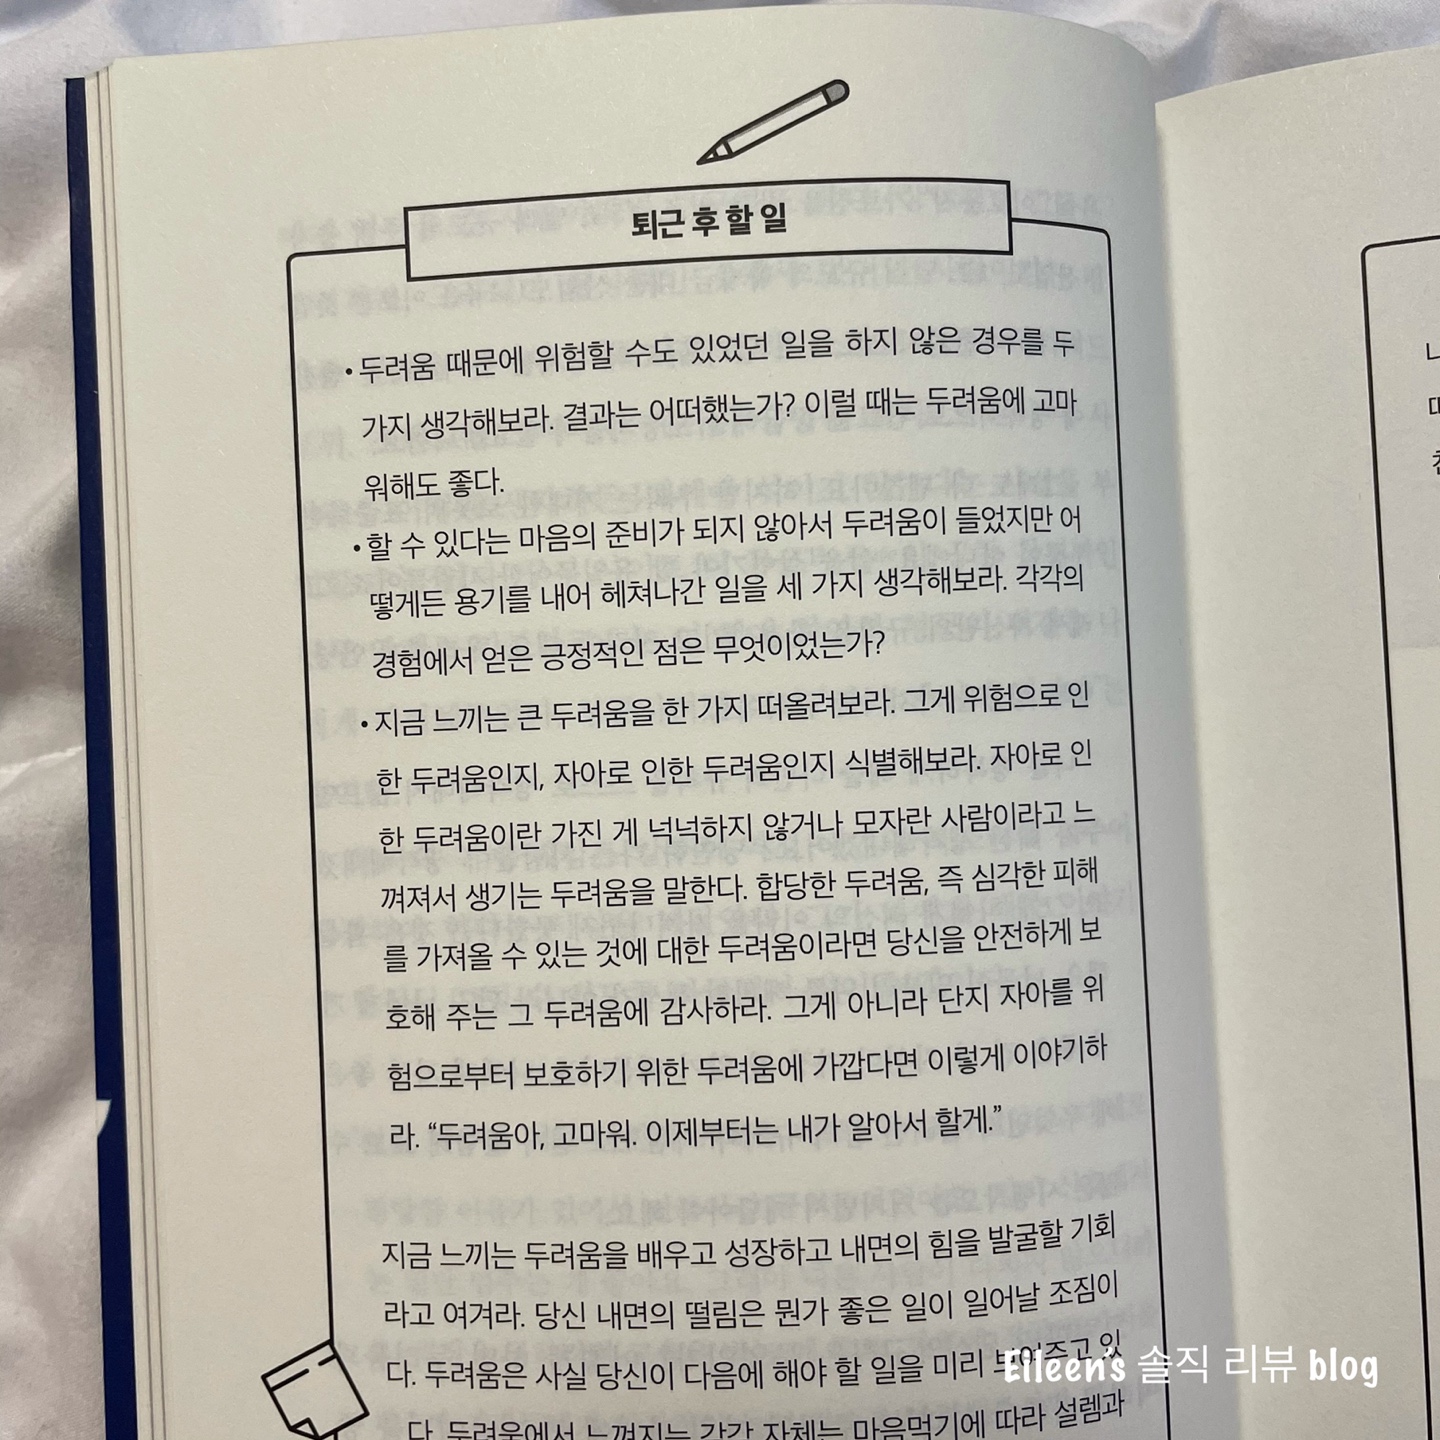 퇴근 후 할 일
• 두려움 때문에 위험할 수도 있었던 일을 하지 않은 경우를 두
가지 생각해보라. 결과는 어떠했는가? 이럴 때는 두려움에 고마
워해도 좋다.
• 할 수 있다는 마음의 준비가 되지 않아서 두려움이 들었지만 어
떻게든 용기를 내어 헤쳐나간 일을 세 가지 생각해보라. 각각의
경험에서 얻은 긍정적인 점은 무엇이었는가?
• 지금 느끼는 큰 두려움을 한 가지 떠올려보라. 그게 위험으로 인
한 두려움인지, 자아로 인한 두려움인지 식별해보라. 자아로 인
한 두려움이란 가진 게 넉넉하지 않거나 모자란 사람이라고 느
껴져서 생기는 두려움을 말한다. 합당한 두려움, 즉 심각한 피해
를 가져올 수 있는 것에 대한 두려움이라면 당신을 안전하게 보
호해 주는 그 두려움에 감사하라. 그게 아니라 단지 자아를 위
험으로부터 보호하기 위한 두려움에 가깝다면 이렇게 이야기하
라. “두려움아, 고마워. 이제부터는 내가 알아서 할게.”
지금 느끼는 두려움을 배우고 성장하고 내면의 힘을 발굴할 기회
라고 여겨라. 당신 내면의 떨림은 뭔가 좋은 일이 일어날 조짐이
다. 두려움은 사실 당신이 다음에 해야 할 일을 미리 보여주고 있
다. 두려움에서 느껴지는 감각 자체는 마음먹기에 따라 설렘과
Eileen's 솔직 리뷰 blog